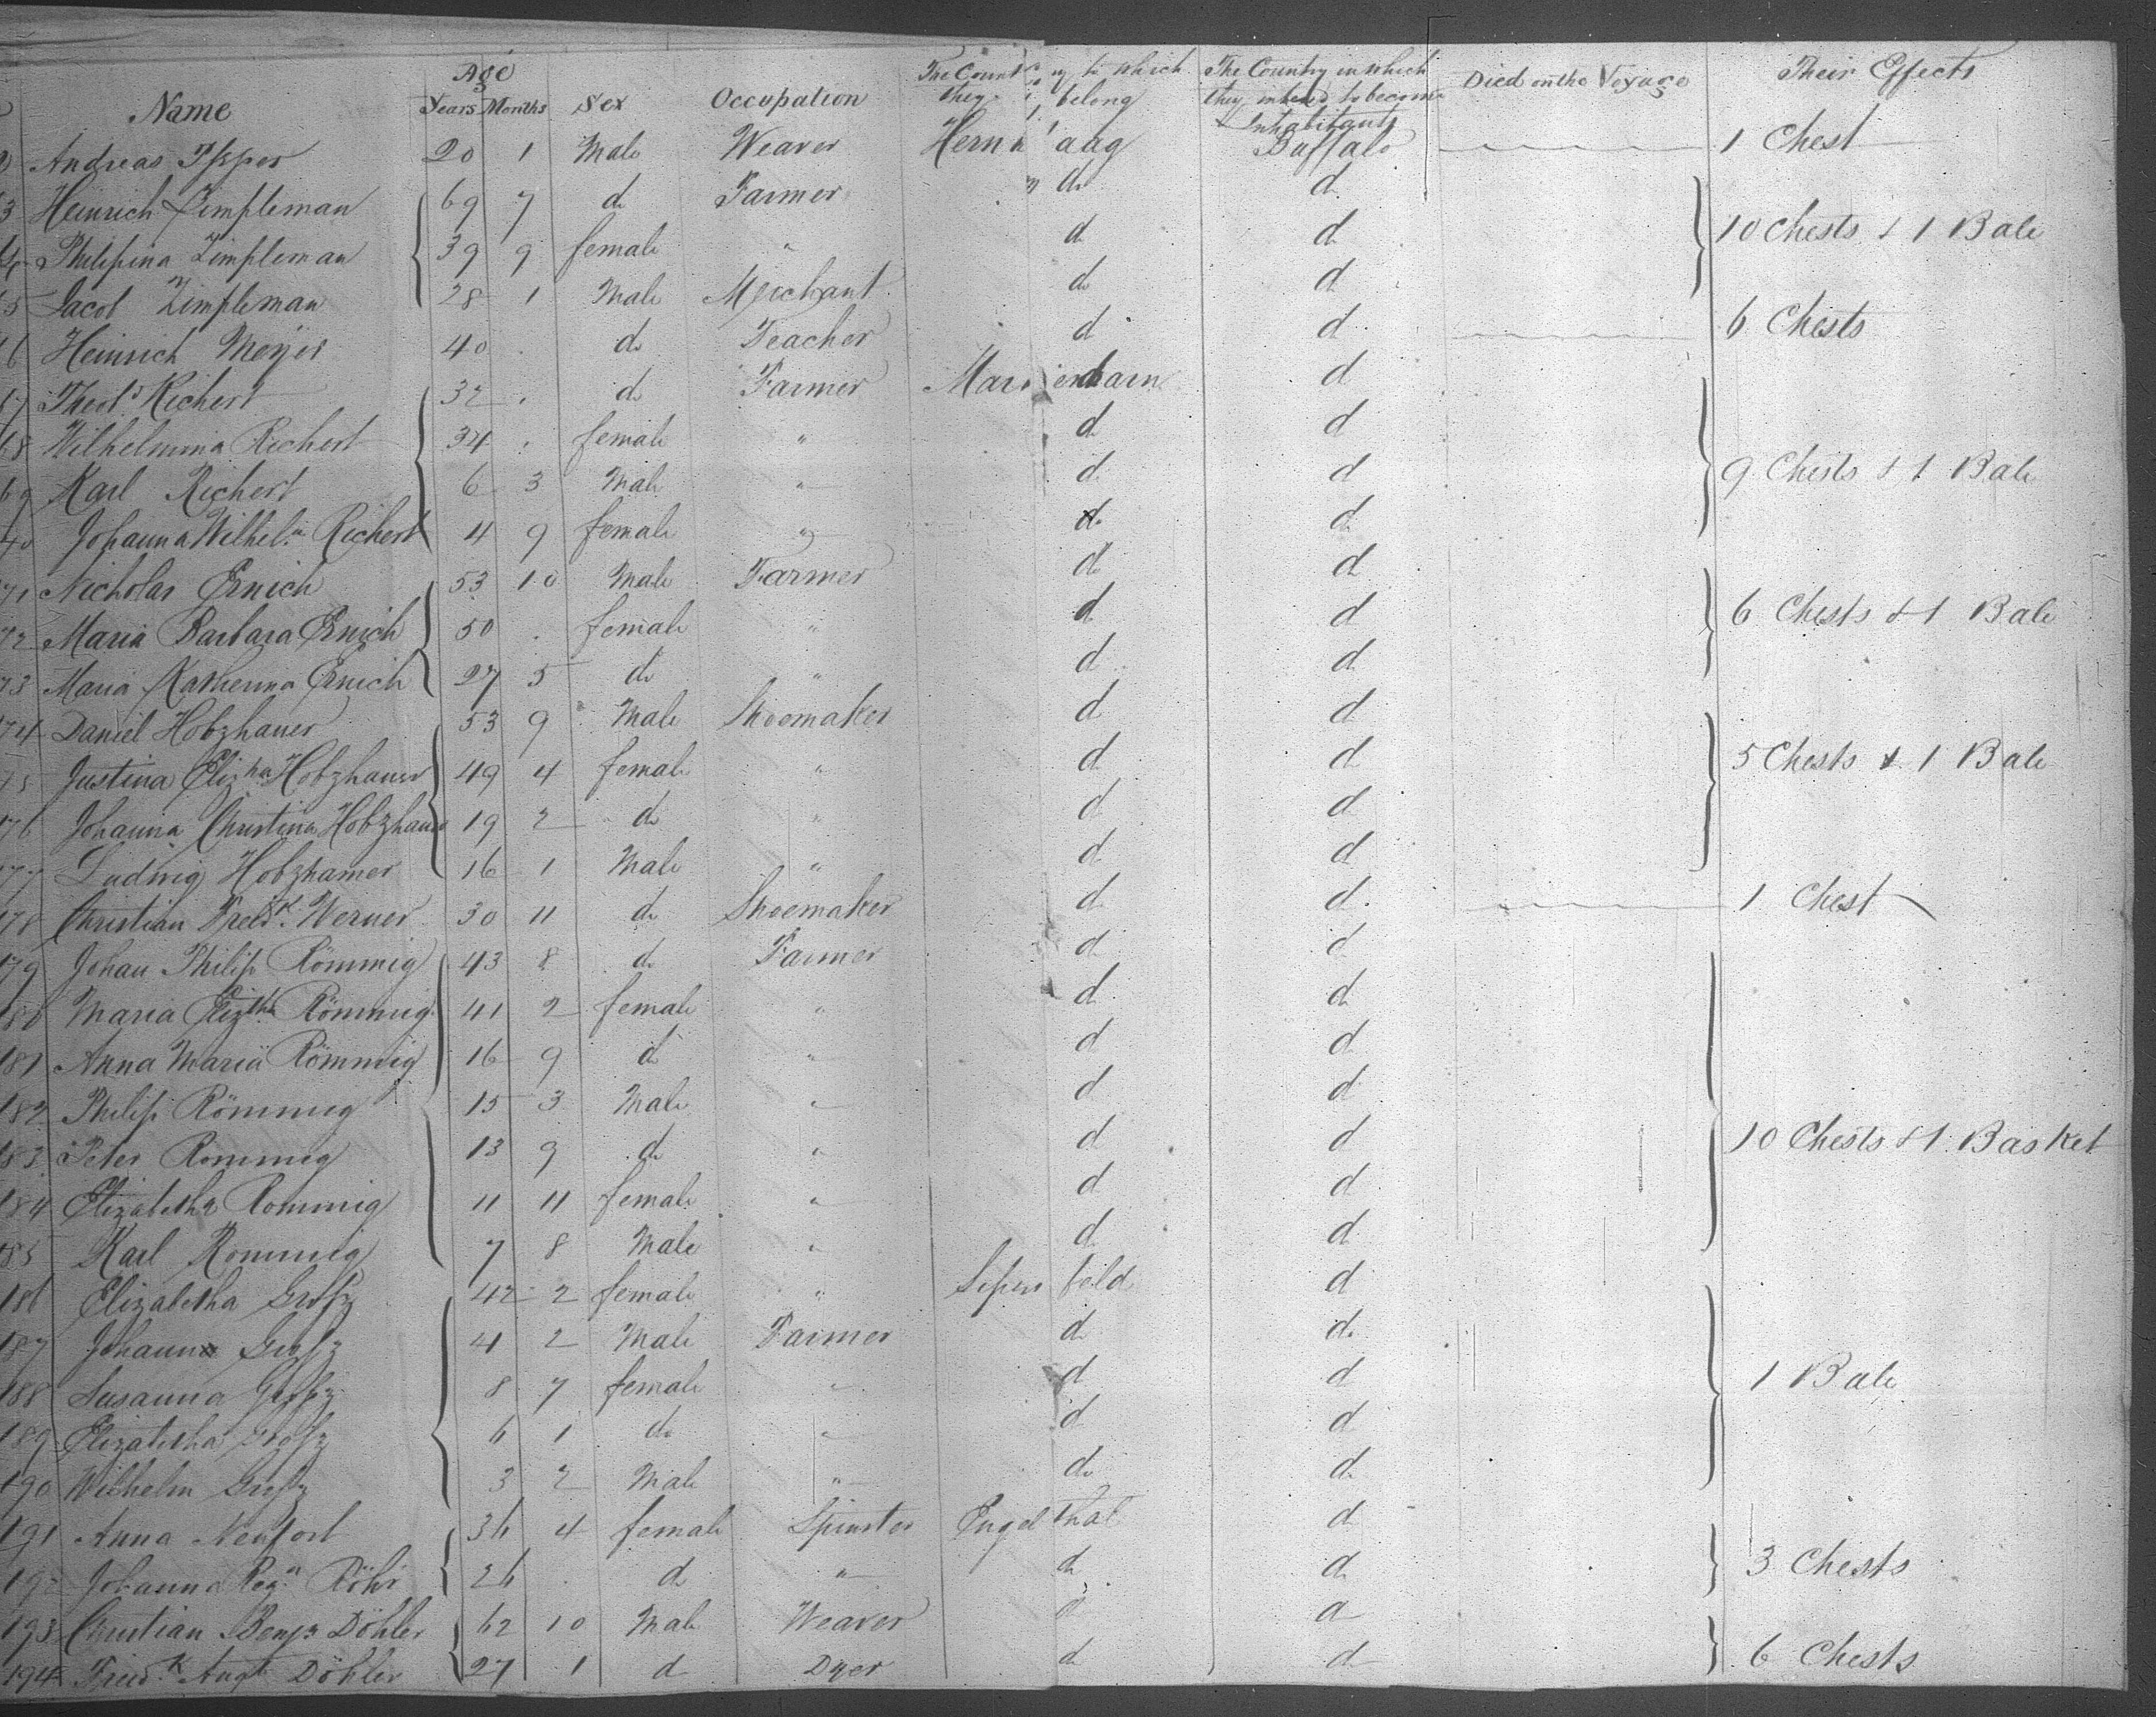 Name Age Years Months Sex Occupation The Country to which they belong The Country in which they intend to become Inhabitants Died on the Voyage Their Effects
Andreas 20 1 Male Weaver Buffalo 1 Chest
3 Heinrich Zimpleman 69 7 do Farmer " do d
Philipina Zimpleman 39 9 female " d d 10 Chests & 1 Bale
5 Jacob Zimpleman 28 1 Male Merchant do d
6 Heinrich Meyer 40 . do Teacher d d 6 Chests
67 Richert 32 . do Farmer Marienborn d
68 Wilhelmina Richert 34 . female " d d
69 Karl Richert 6 3 Male " d d 9 Chests & 1 Bale
Johanna Wilhel.a Richert 4 9 female " do d
71 Nicholas Ernich 53 10 Male Farmer do d
72 Maria Barbara Ernich 50 . female " d d 6 Chests & 1 Bale
73 Maria Katherina Ernich 27 5 do " d d
174 Daniel Hobzhauer 53 9 Male Shoemaker d d
75 Justina Eliztha Hobzhauer 49 4 female " d d 5 Chests & 1 Bale
176 Johanna Christina Hobzhauer 19 2 do " d d
177 Ludwig Hobzhamer 16 1 Male " d d
178 Christian Fredk. Werner 30 11 do Shoemaker d d 1 Chest
179 Johan Philip Römmig 43 8 do Farmer d d
180 Maria Eliztha Römmig 41 2 female " d d
181 Anna Maria Römmig 16 9 do " d d
182 Philip Römmig 15 3 Male " d d
183 Peter Römmig 13 9 do " d d 10 Chests & 1 Basket
184 Elizabetha Rommig 11 11 female " d d
185 Karl Rommig 7 8 Male " d d
186 Elizabetha 42 2 female " d
187 Johann 4 2 Male Farmer d do
188 Susanna 8 7 female " d d 1 Bale
189 Elizabetha 6 1 do " d d
190 Wilhelm 3 2 Male " do d
191 Anna Neufort 36 4 female Spinster Engelthal d
192 Johanna Regn Röhr 26 . d " do d 3 Chests
193 Christian Benjn Döhler 62 10 Male Weaver d d
194 Friedk Augt Döhler 27 1 d Dyer d d 6 Chests